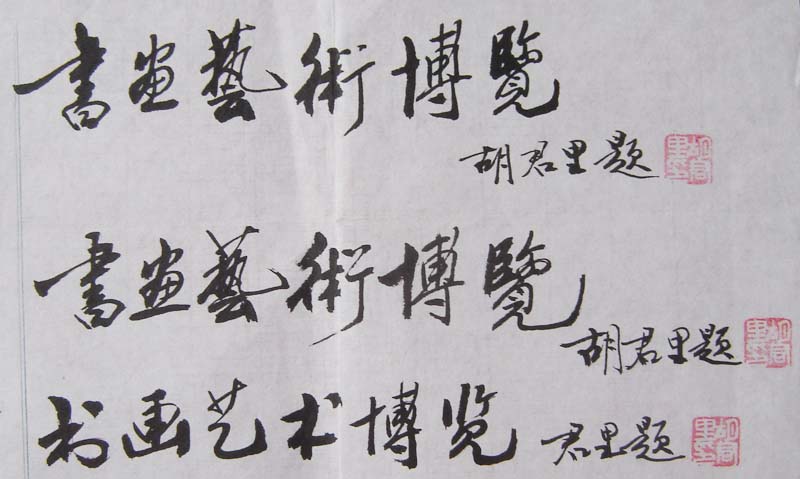 書畫藝術博覽
胡君里題
書畫藝術博覽
胡君里題
书画艺术博览
君里題